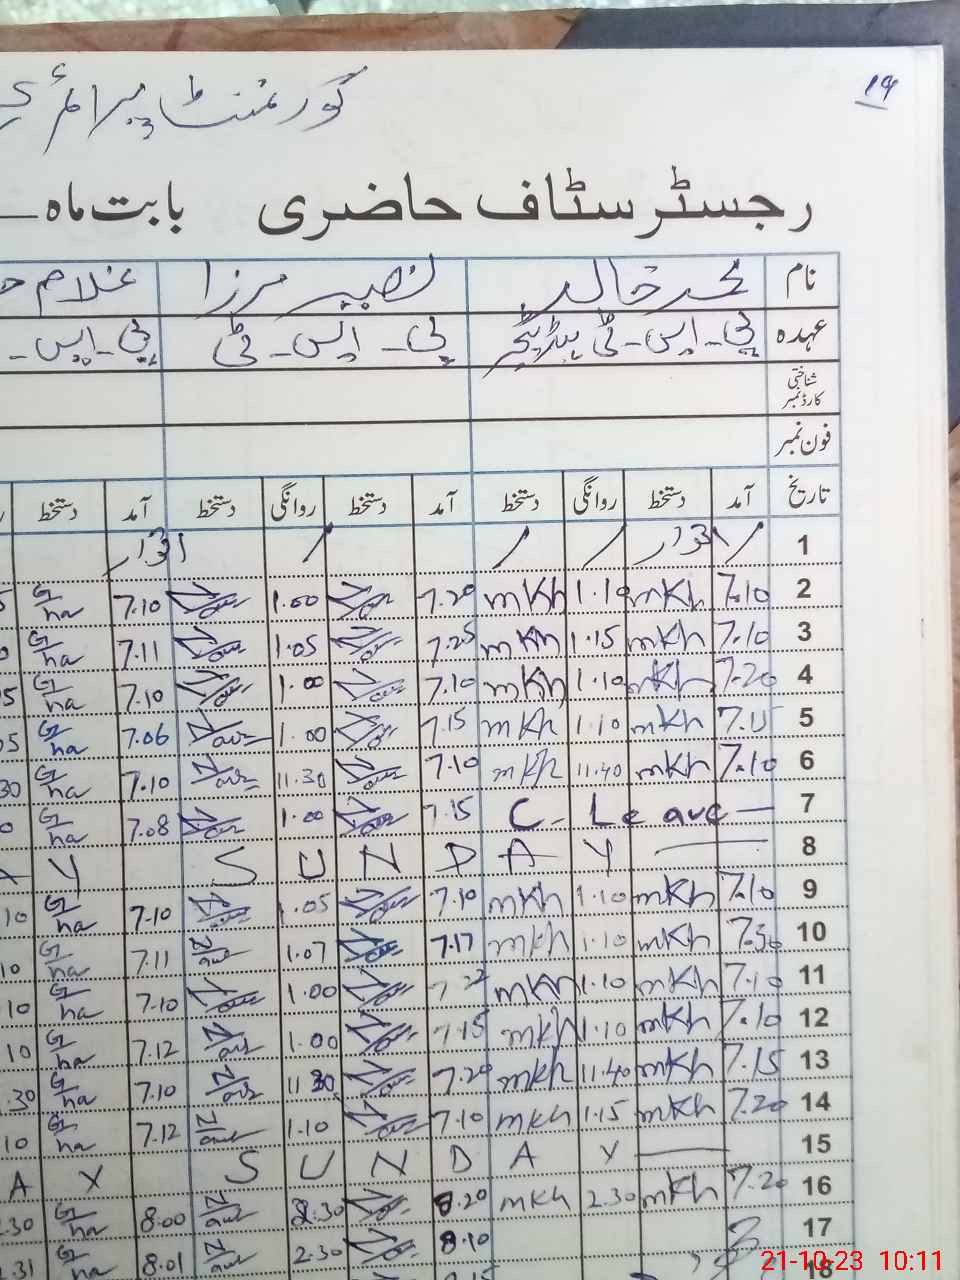 19
گورنمنٹ پرائمری
رجسٹر سٹاف حاضری بابت ماہ
نام محمد خالد نصیر مرزا غلام
عہدہ پی-ایس-ٹی ہیڈٹیچر پی-ایس-ٹی پی-ایس-
شناختی کارڈ نمبر
فون نمبر
تاریخ آمد دستخط روانگی دستخط آمد دستخط روانگی دستخط آمد دستخط
1 اتوار اتوار
2 7.10 mKh 1.10 mKh 7.20 1.00 7.10 G/ha
3 7.10 mKh 1.15 mKh 7.25 1.05 7.11 G/ha
4 7.20 mKh 1.10 mKh 7.10 1.00 7.10 G/ha
5 7.15 mKh 1.10 mKh 7.15 1.00 7.06 G/ha
6 7.10 mKh 11.40 mKh 7.10 11.30 7.10 G/ha
7 C. Leave 7.15 1.00 7.08 G/ha
8 S U N D A Y Y
9 7.10 mKh 1.10 mKh 7.10 1.05 7.10 G/ha
10 7.30 mKh 1.10 mKh 7.17 1.07 7.11 G/ha
11 7.10 mKh 1.10 mKh 7.22 1.00 7.10 G/ha
12 7.10 mKh 1.10 mKh 7.15 1.00 7.12 G/ha
13 7.15 mKh 11.40 mKh 7.20 11.30 7.10 G/ha
14 7.20 mKh 1.15 mKh 7.10 1.10 7.12 G/ha
15 S U N D A Y A Y
16 7.20 mKh 2.30 mKh 8.20 2.30 8.00 G/ha
17 8.10 2.30 8.01 G/ha
18
21-10-23 10:11